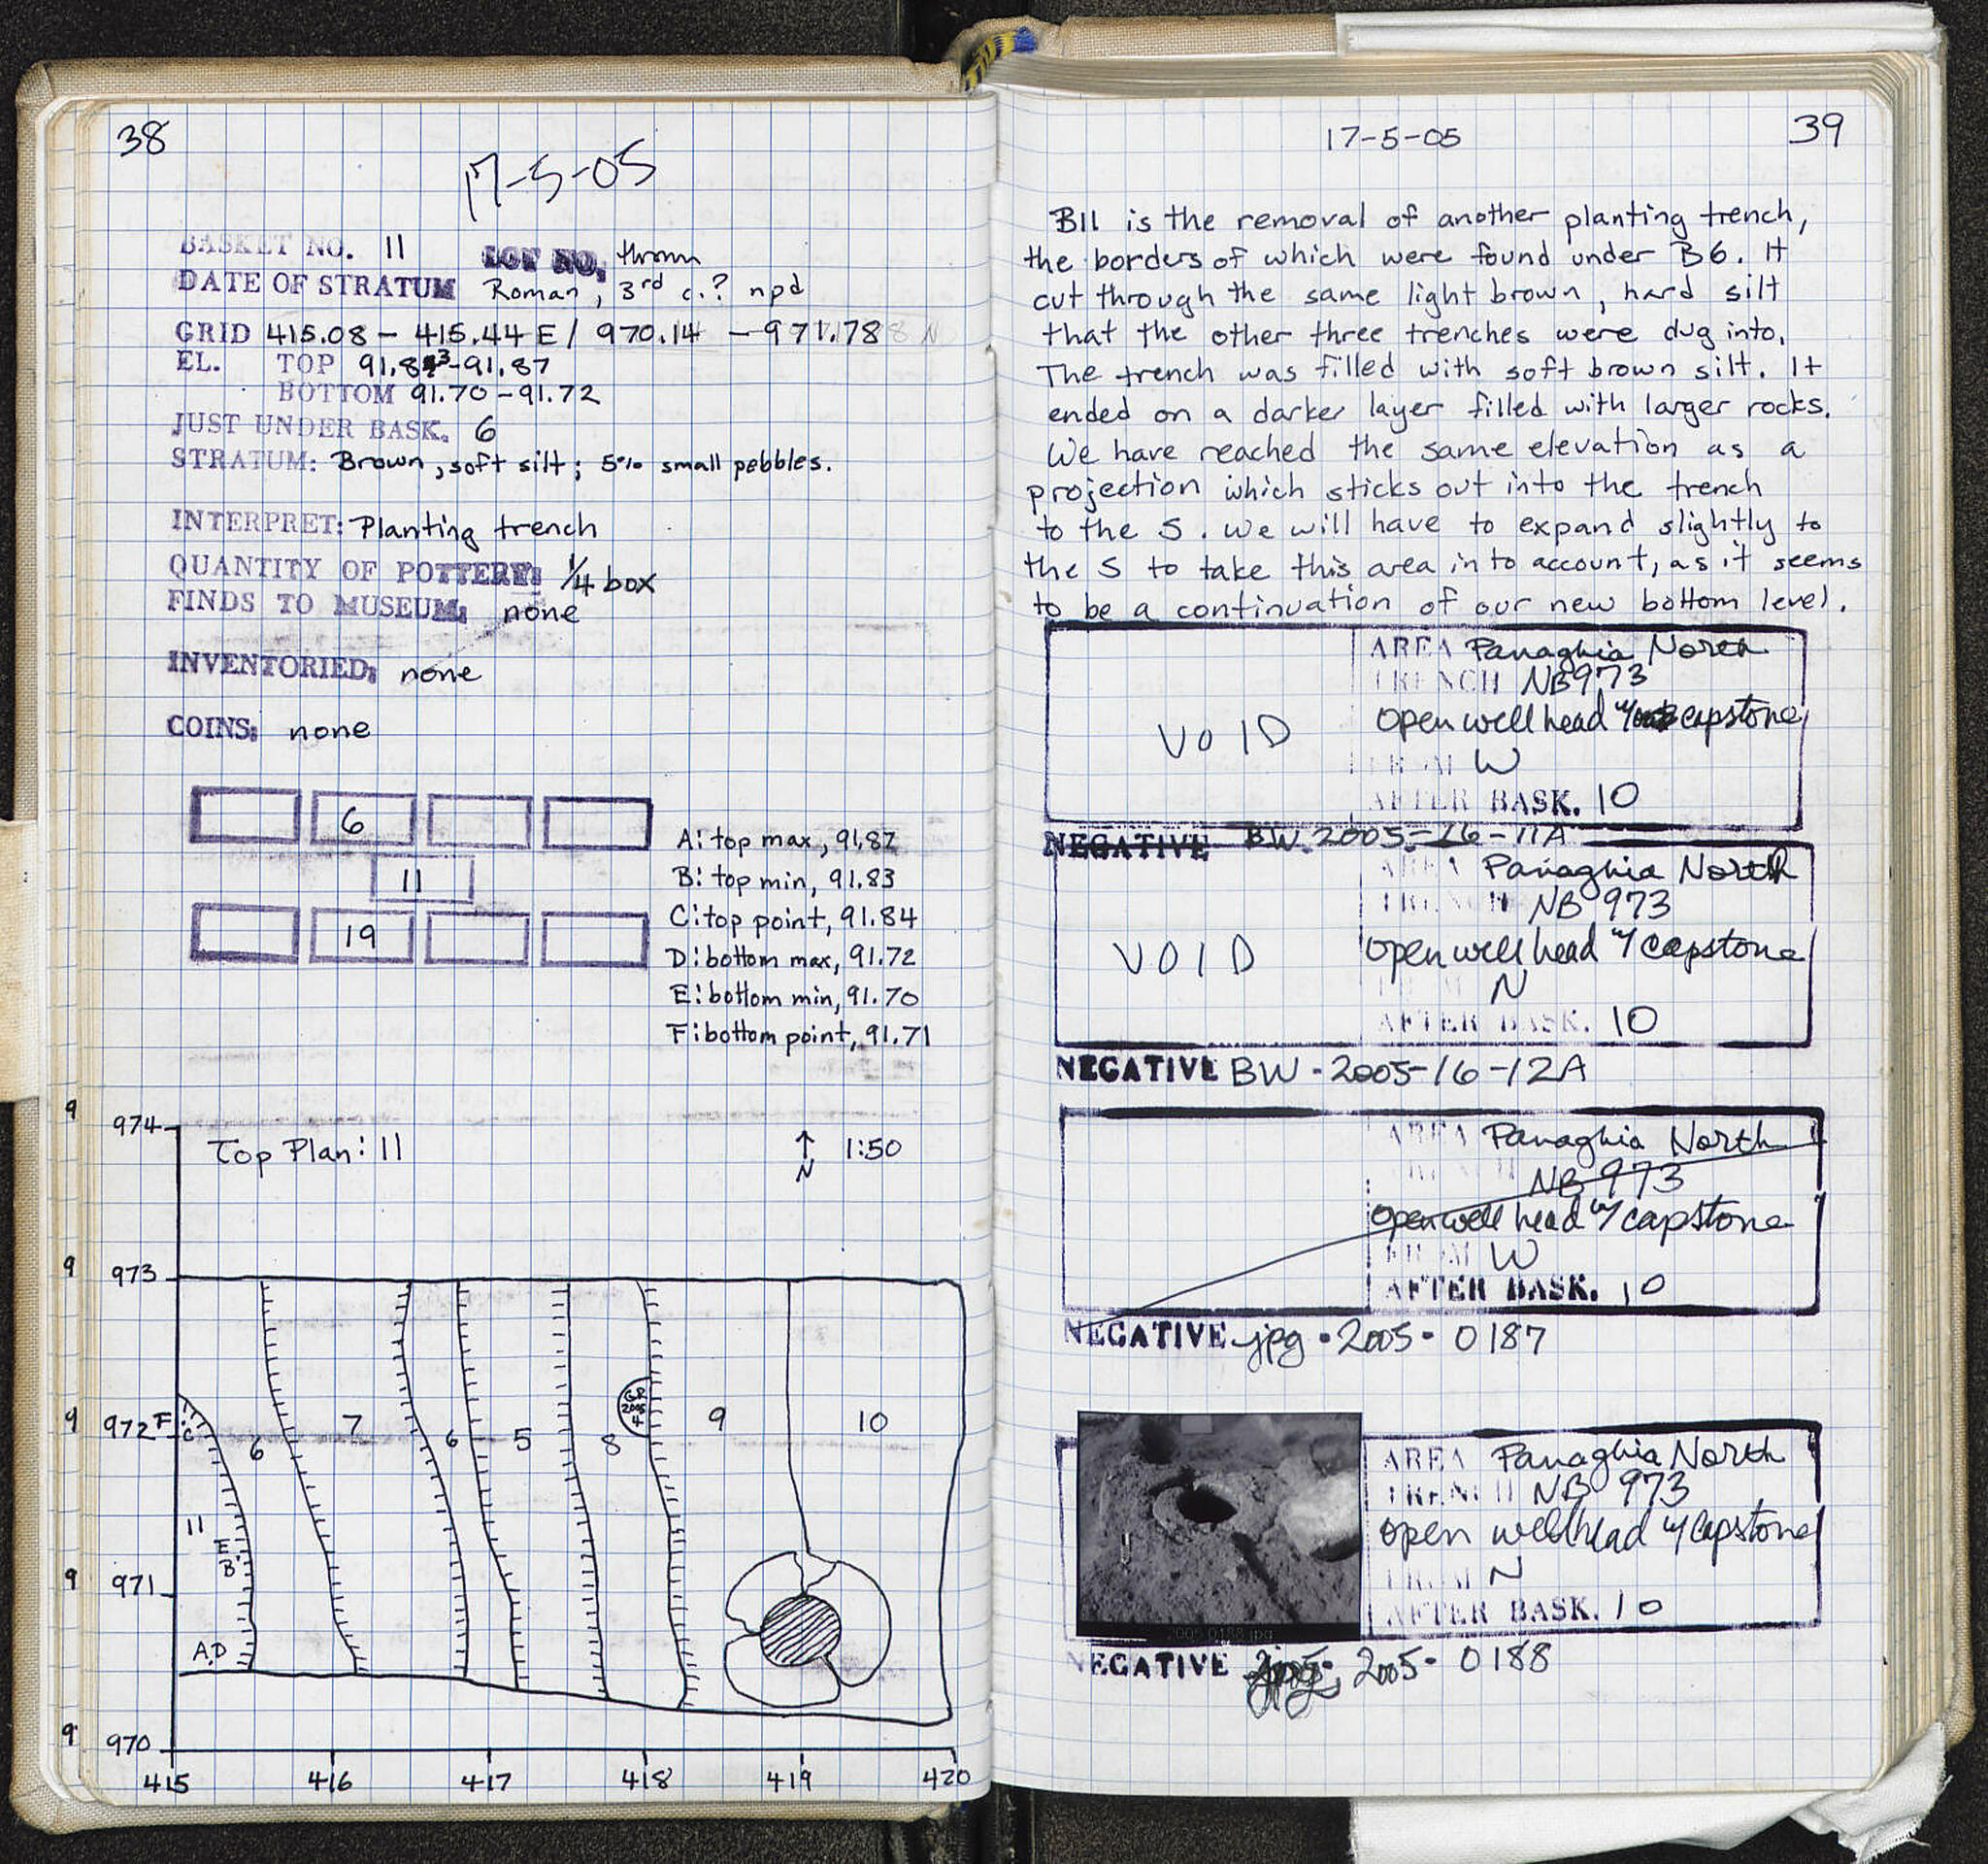 38
17-5-05
BASKET NO. 11 LOT NO. thrown
DATE OF STRATUM Roman, 3rd c.? npd
GRID 415.08 - 415.44 E / 970.14 - 971.78 N
EL. TOP 91.83-91.87
BOTTOM 91.70-91.72
JUST UNDER BASK. 6
STRATUM: Brown, soft silt; 5% small pebbles.
INTERPRET: Planting trench
QUANTITY OF POTTERY: 1/4 box
FINDS TO MUSEUM: none
INVENTORIED: none
COINS: none
6
11
19
A: top max, 91.87
B: top min, 91.83
C: top point, 91.84
D: bottom max, 91.72
E: bottom min, 91.70
F: bottom point, 91.71
Top Plan: 11
N
1:50
9 974
9 973
9 972
9 971
9 970
F
C
6
7
6
5
8
GR
2005
4
9
10
11
E
B
A,D
415 416 417 418 419 420
17-5-05
39
B11 is the removal of another planting trench,
the borders of which were found under B6. It
cut through the same light brown, hard silt
that the other three trenches were dug into.
The trench was filled with soft brown silt. It
ended on a darker layer filled with larger rocks.
We have reached the same elevation as a
projection which sticks out into the trench
to the S. We will have to expand slightly to
the S to take this area in to account, as it seems
to be a continuation of our new bottom level.
VOID
AREA Panaghia North
TRENCH NB973
open well head w/ capstone
FROM W
AFTER BASK. 10
NEGATIVE BW.2005-16-11A
VOID
AREA Panaghia North
TRENCH NB 973
open well head w/ capstone
FROM N
AFTER BASK. 10
NEGATIVE BW-2005-16-12A
AREA Panaghia North
TRENCH NB 973
open well head w/ capstone
FROM W
AFTER BASK. 10
NEGATIVE jpg-2005-0187
AREA Panaghia North
TRENCH NB 973
open wellhead w/ capstone
FROM N
AFTER BASK. 10
2005 0188.jpg
NEGATIVE jpg- 2005-0188